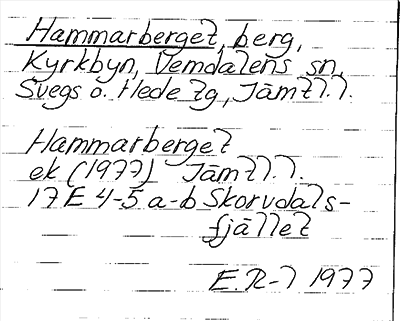 Hammarberget, berg,
Kyrkbyn, Vemdalens sn,
Svegs o. Hede tg, Jämtl.l.
Hammarberget
ek (1977) Jämtl.l.
17E 4-5 a-b Skorvdals-
fjället
E.R-l 1977